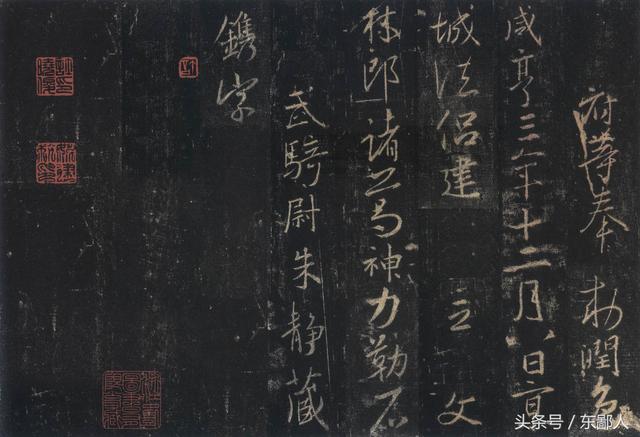 府等奉 勅潤色
咸亨三年十二月八日京
城法侶建 立 文
林郎諸葛神力勒石
武騎尉朱静藏
鐫字
头条号 / 东鄙人